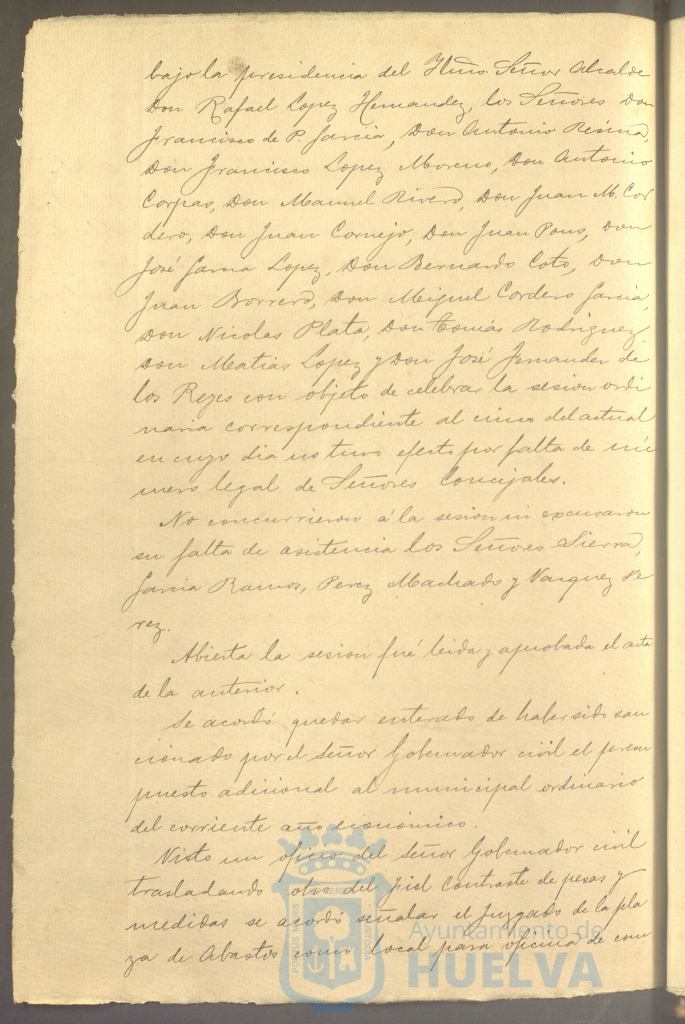 bajo la presidencia del Ylmo. Señor Alcalde
Don Rafael Lopez Hernandez, los Señores Don
Francisco de P. Garcia, Don Antonio Resina,
Don Francisco Lopez Moreno, Don Antonio
Corpas, Don Manuel Rivero, Don Juan M. Cor
dero, Don Juan Cornejo, Don Juan Pons, Don
José Garcia Lopez, Don Bernardo Coto, Don
Juan Borrero, Don Miguel Cordero Garcia,
Don Nicolas Plata, Don Tomás Rodriguez,
Don Matias Lopez y Don José Fernandez de
los Reyes con objeto de celebrar la sesion ordi
naria correspondiente al cinco del actual
en cuyo dia no tuvo efecto por falta de nú
mero legal de Señores Concejales.
No concurrieron á la sesion ni excusaron
su falta de asistencia los Señores Sierra,
Garcia Ramos, Perez Machado y Vazquez Pe
rez.
Abierta la sesion fué leida y aprobada el acta
de la anterior.
Se acordó quedar enterado de haber sido san
cionado por el Señor Gobernador civil el presu
puesto adicional al municipal ordinario
del corriente año económico.
Visto un oficio del Señor Gobernador civil
trasladando otro del Fiel Contraste de pesas y
medidas se acordó señalar el Juzgado de la pla
za de Abastos como local para oficina de com
Ayuntamiento de
HUELVA